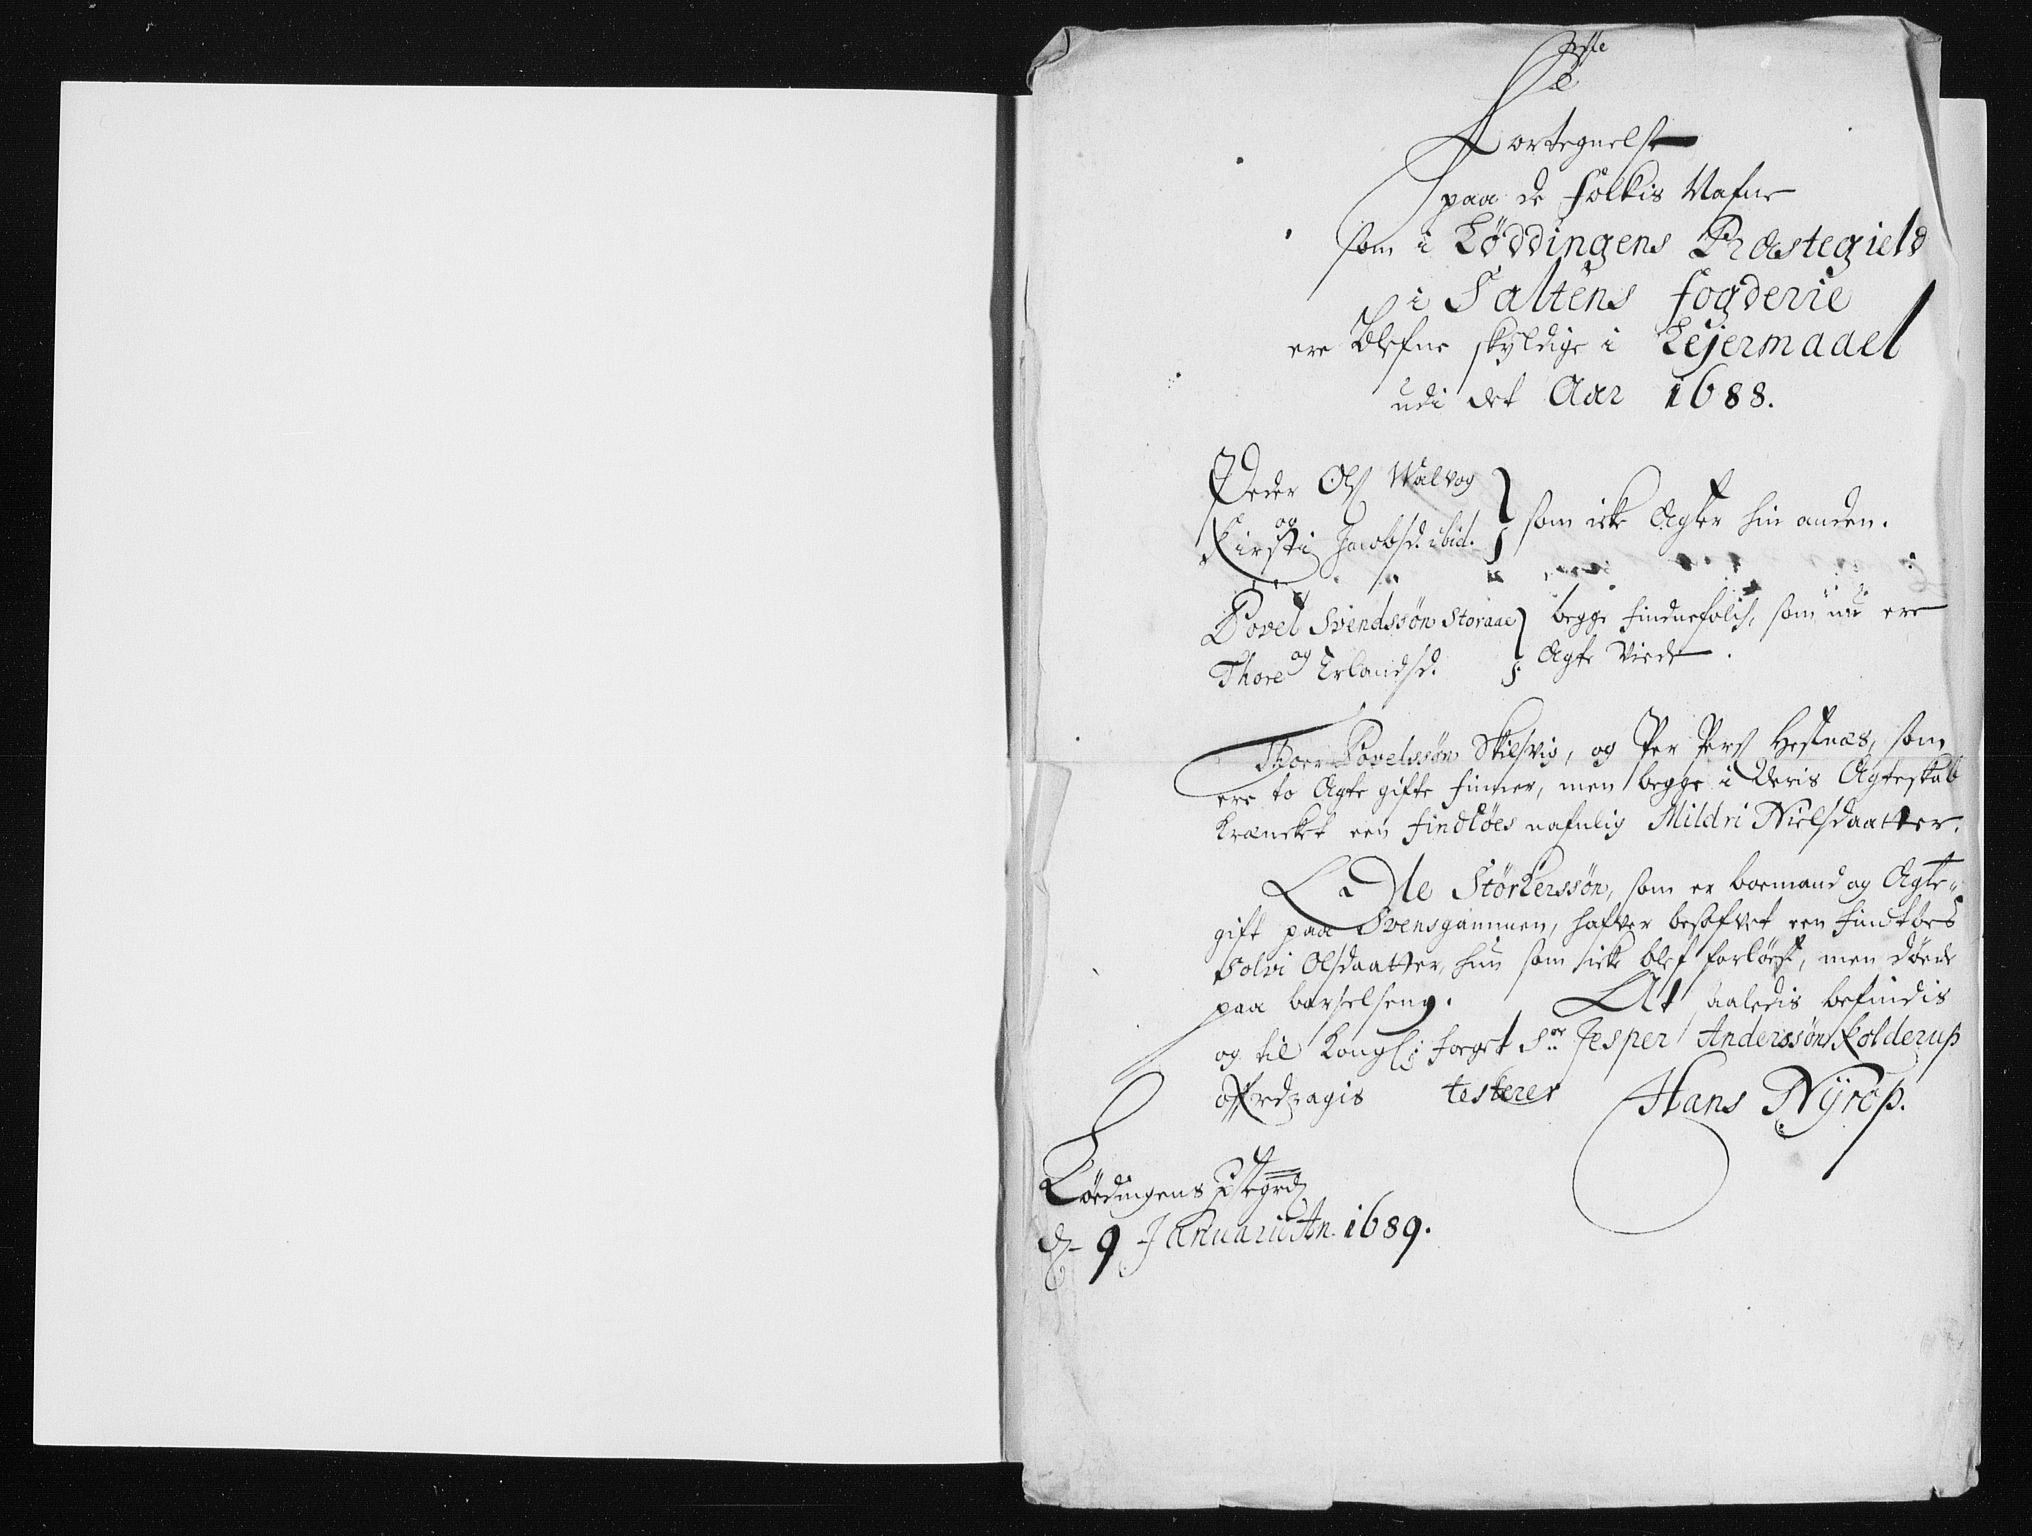 Fortegnelse
paa de Folkis Nafne
som i Løddingens Præstegield
i Saltens fogderie
ere blefne skyldige i Lejermaael
udi det Aar 1688.
Peder Ols Walvog
og
Kirsti Jacobsd. ibid. } som icke Ægter hin anden.
Povel Svendssøn Storaae } begge findnefolch, som nu ere
og
Thore Erlandsd. Ægte Viede.
Thoer Povelssøn Skilsvig, og Per Pers Hestnæs, som
ere to Ægte gifte finner, men begge i Deris Ægteskab
Kræncket een findtøes nafnlig Mildri Nielsdaatter.
Ole Størkerssøn, som er boemand og Ægte-
gift paa Svensgammen, hafver besofvet een findtøes
Solvi Olsdaatter, hun som icke blef forløest, men døede
paa barselseng. At saaledis befindis
og til Kongl: foeget Sr. Jesper Anderssøn Kolderup
ofverdragis testerer Hans Nÿrop.
Løedingens Præstegrd
d. 9 Januarii An. 1689.